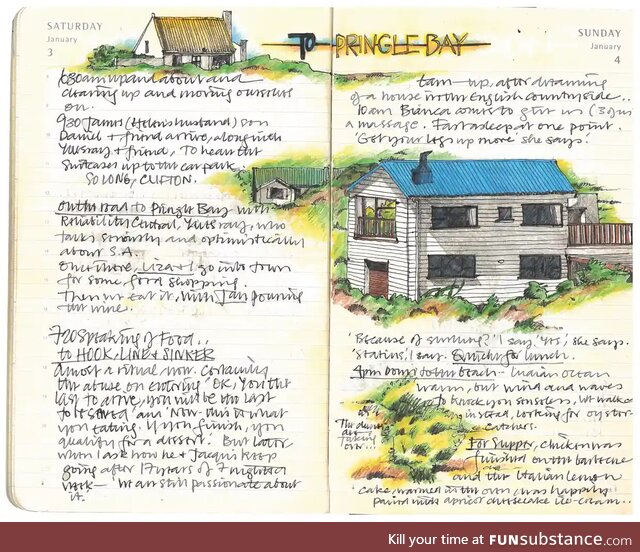 SATURDAY
January
3
TO PRINGLE BAY
SUNDAY
January
4
630am up and about and
clearing up and moving ourselves
on.
930 James (Helen's husband) son
Daniel + friend arrive, along with
+ friend, To hear the
suitcases up to the car park.
SO LONG, CLIFTON.
on the road to Pringle Bay with
Reliability Central, who
talks seriously and optimistically
about S.A.
Once more, Liza + I go into town
for some food shopping.
Then we eat it, with Jan pouring
the wine.
720 Speaking of Food..
to HOOK, LINE + SINKER
almost a ritual now. Certainly
the abuse on entering 'OK, you the
last to arrive, you will be the last
to be served' and 'Now this is what
you eating. If you finish, you
qualify for a dessert.' But later
when I ask how he + Jacqui keep
going after 17 years of 7 nights a
week - 'we am still passionate about
it.
7am up, after dreaming
of a house in the English countryside..
10am Bianca comes to give us (3 of us)
a massage. Fast asleep at one point.
'Got your legs up more' she says.
'Because of surfing?' I say. 'Yes', she says.
'Statins', I say. for lunch.
4pm Down to the beach - Indian Ocean
warm, but wind and waves
to knock you senseless, we walk
instead, looking for oyster-
catchers.
The dunes
are
taking
over...
For Supper, chicken was
finished on the barbecue
and the Italian lemon
cake, warmed in the oven, was happily
paired with apricot cheesecake ice-cream..
Kill your time at FUNsubstance.com